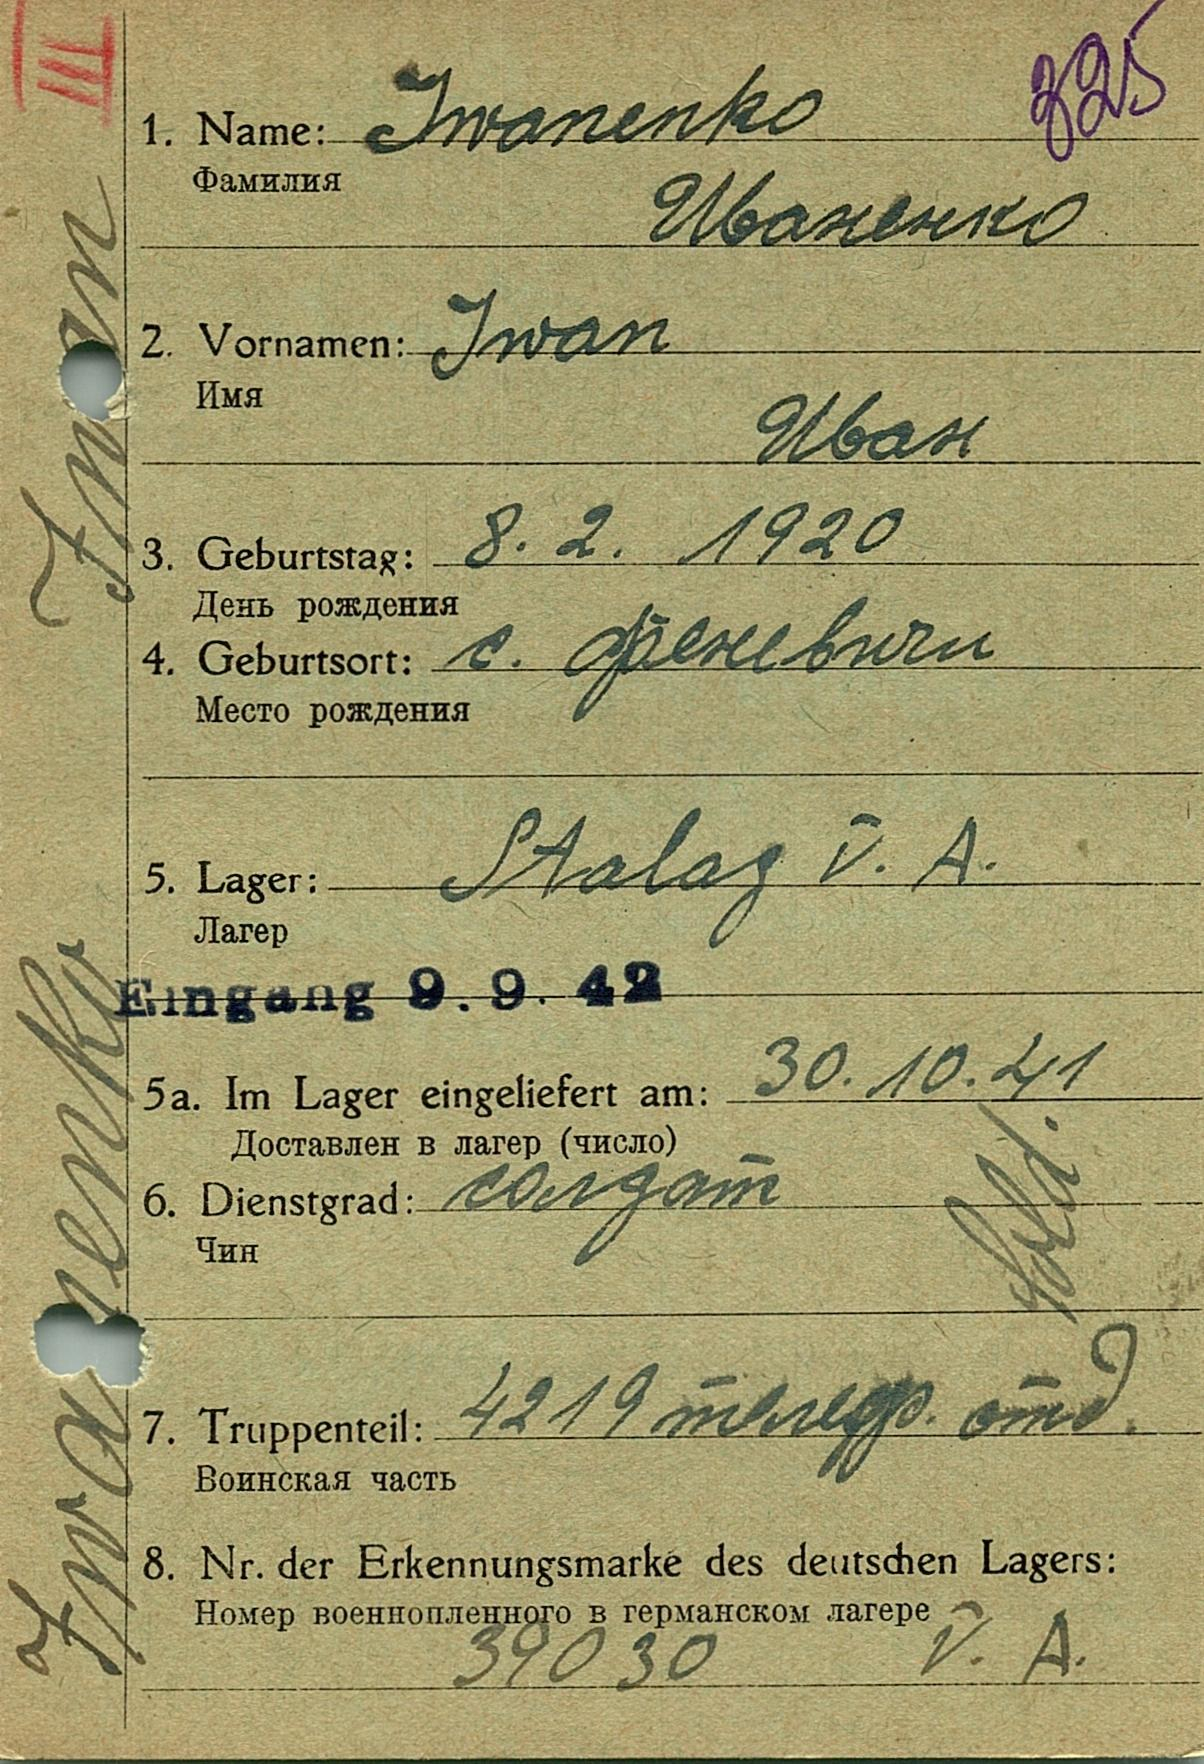 III
325
1. Name: Iwanenko
Фамилия
Иваненко
2. Vornamen: Iwan
Имя
Иван
3. Geburtstag: 8. 2. 1920
День рождения
4. Geburtsort: с. феневичи
Место рождения
5. Lager: Stalag V. A.
Лагер
Eingang 9.9.42
5a. Im Lager eingeliefert am: 30. 10. 41
Доставлен в лагер (число)
6. Dienstgrad: солдат
Чин
Sold.
7. Truppenteil: 4219 телеф. отд.
Воинская часть
8. Nr. der Erkennungsmarke des deutschen Lagers:
Номер военнопленного в германском лагере
39030 V. A.
Iwanenko Iwan